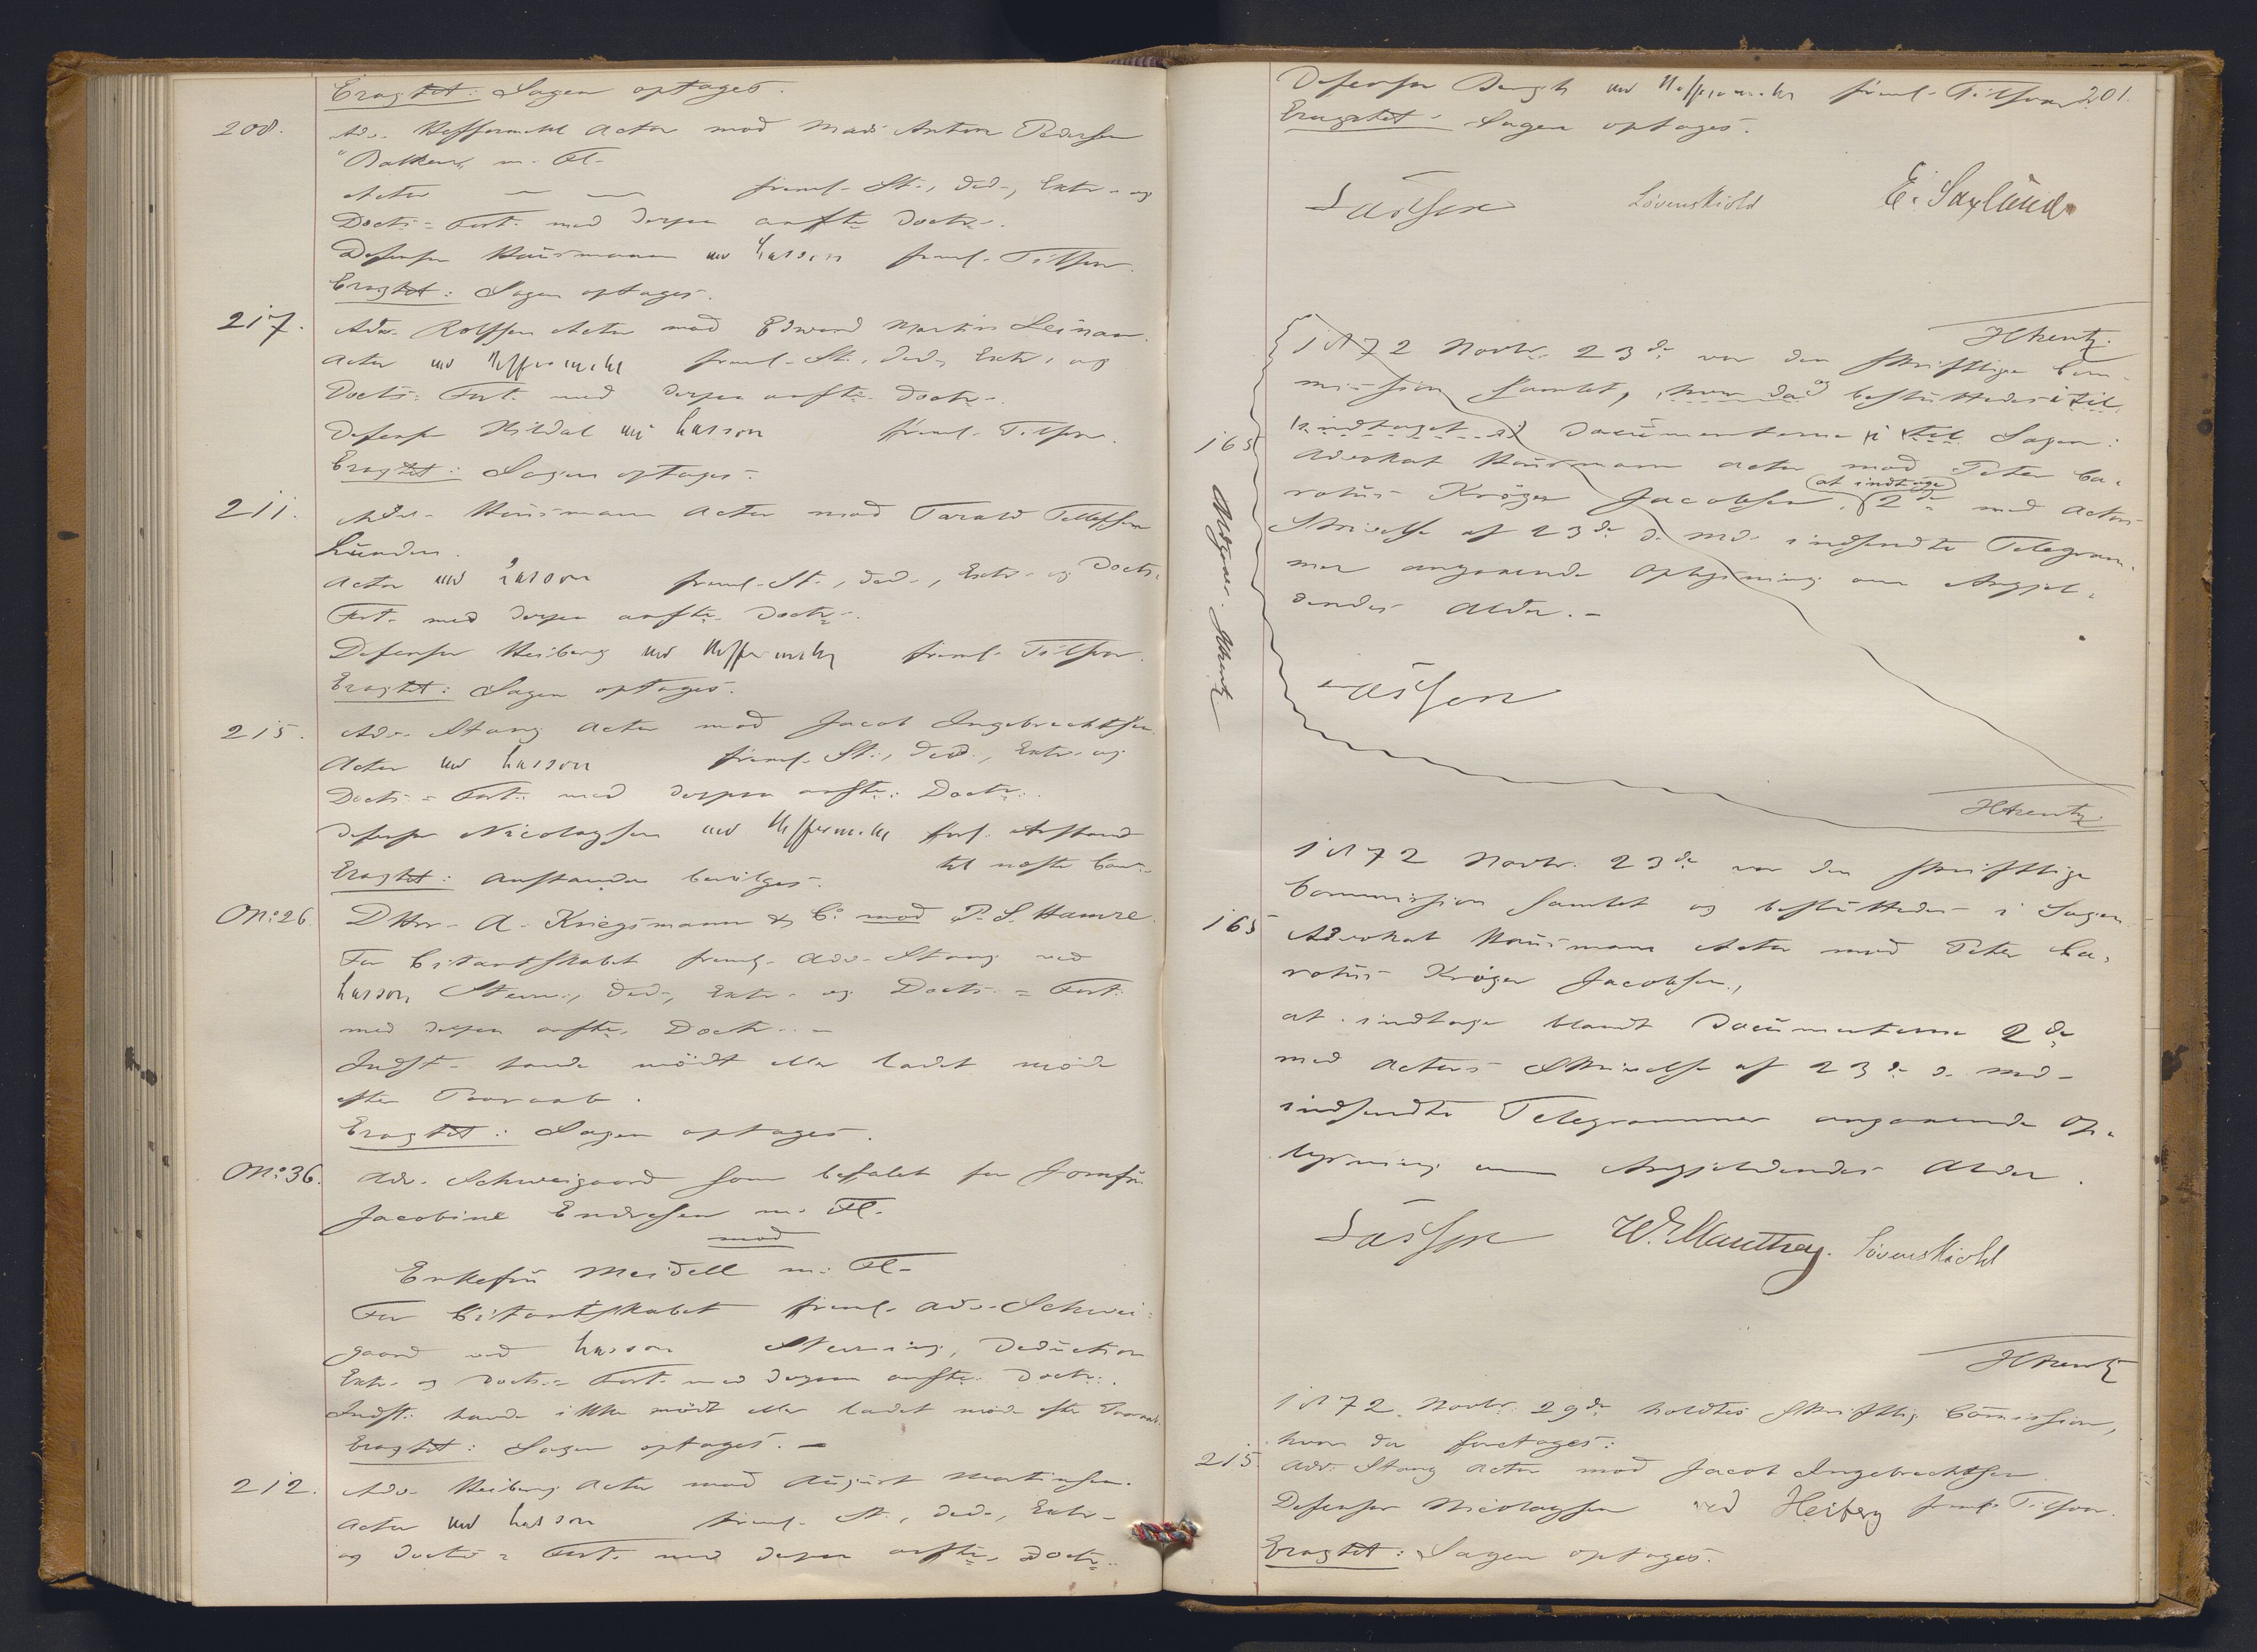 Eragtet: Sagen optages.
208. Adv. Heffermehl Actor mod Mads Anton Pedersen
"Bakken" m. Fl.
Actor — — freml. St., Ded., Extr. og
Docts. = Fort. med derpaa anfte. Doctr.
Defensor Hausmann ved Lasson freml. Tilsvar.
Eragtet: Sagen optages.
217. Adv. Rolfsen Actor mod Edvard Martin Leinaar.
Actor ved Heffermehl freml. St., Ded., Extr. og
Docts. Fort. med derpaa anfte. Doctr.
Defensor Hildal ved Lasson freml. Tilsvar.
Eragtet: Sagen optages.
211. Adv. Hausmann Actor mod Tarald Tellefsen
Lunden.
Actor ved Lasson freml. St., Ded., Extr. og Docts.
Fort. med derpaa anfte. Doctr.
Defensor Heiberg ved Heffermehl freml. Tilsvar.
Eragtet: Sagen optages.
215. Adv. Stang Actor mod Jacob Ingebrechtsen.
Actor ved Lasson freml. St., Ded., Extr. og
Docts. = Fort. med derpaa anfte. Doctr.
Defensor Nicolaysen ved Heffermehl forl. Anstand
til næste Com.
Eragtet: Anstanden bevilges.
No. 26. DHrr. A. Kriegsmann & Co. mod P. S. Hamre.
For Citantskabet freml. Adv. Stang ved
Lasson, Stevn., Ded., Extr. og Docts. = Fort.
med derpaa anfte. Doctr. —
Indst. havde mödt eller ladet möde
efter Paaraab.
Eragtet: Sagen optages.
No. 36. Adv. Schweigaard som befalet for Jomfru
Jacobine Endresen m. Fl.
mod
Enkefru Meidell m. Fl.
For Citantskabet freml. Adv. Schwei-
gaard ved Lasson Stevning, Deduction
Extr. og Docts. = Fort. med derpaa anfte. Doctr.
Indst. havde ikke mödt eller ladet möde efter Paaraab.
Eragtet: Sagen optages. —
212. Adv. Heiberg Actor mod August Martinsen.
Actor ved Lasson freml. St., Ded., Extr.
og Docts. = Fort. med derpaa anfte. Doctr.
Defensor Bergh ved Heffermehl freml. Tilsvar 201.
Eragtet: Sagen optages.
Lasson Lövenskiold E. Saxlund
HKrentz.
1872 Novbr. 23de var den skriftlige Com-
mission samlet, hvor da og besluttedes i til
indtaget i Documenterne i til Sagen:
165 Advokat Hausmann Actor mod Peter Ca-
rolus Kröger Jacobsen, (at indtage) 2de med Actors
Skrivelse af 23de d. Md. indsendte Telegram-
mer angaaende Oplysning om Angjel-
dendes Alder. —
Udgaar. HKrentz
Lasson
HKrentz.
1872 Novbr. 23de var den skriftlige
Commission samlet og besluttedes i Sagen
165 Advokat Hausmann Actor mod Peter Ca-
rolus Kröger Jacobsen,
at indtage blandt Documenterne 2de
med Actors Skrivelse af 23de d. Md.
indsendte Telegrammer angaaende Op-
lysning om Angjeldendes Alder.
Lasson W. Manthey. Lövenskiold
HKrentz
1872 Novbr. 29de holdtes skriftlig Comission,
hvor da foretages:
215. Adv. Stang Actor mod Jacob Ingebrechtsen
Defensor Nicolaysen ved Heiberg freml. Tilsvar.
Eragtet: Sagen optages.